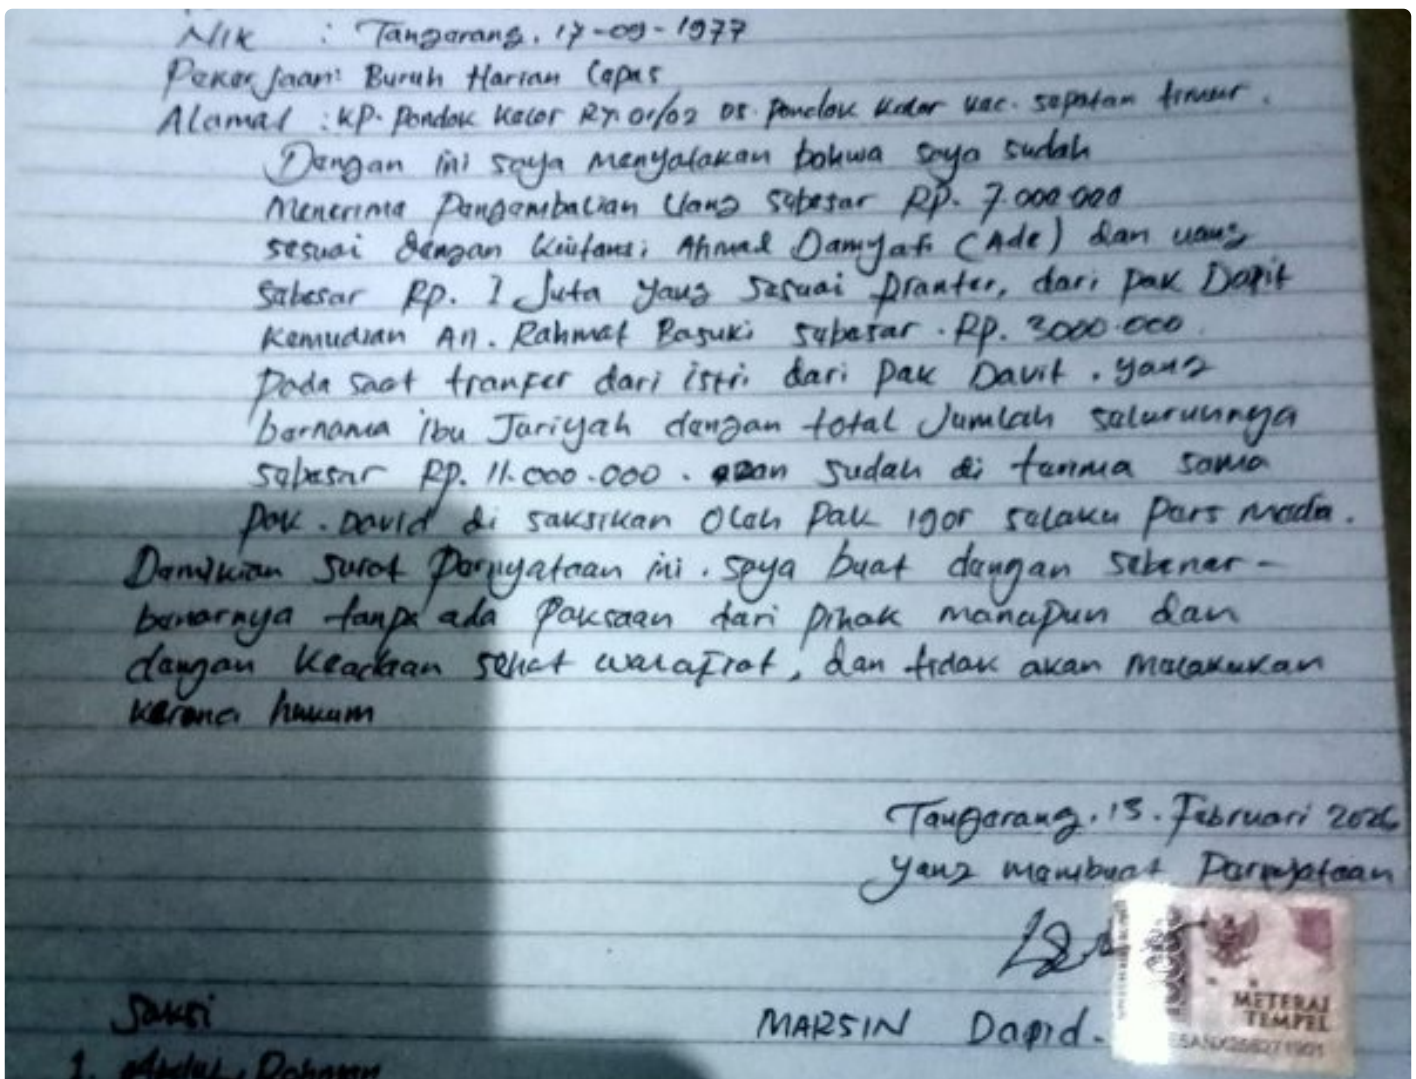 Nik : Tangerang, 17-09-1977
Pekerjaan: Buruh Harian Lepas
Alamat : KP. Pondok Kelor RT. 01/02 DS. Pondok Kelor Kec. Sepatan timur.
Dengan ini saya menyatakan bahwa saya sudah
Menerima Pengembalian Uang sebesar RP. 7.000.000
sesuai dengan Kwitansi Ahmad Damyati (Ade) dan uang
sebesar RP. 1 Juta yang sesuai Tranfer, dari pak Dapit
Kemudian An. Rahmat Basuki sebesar. RP. 3000.000.
pada saat tranfer dari istri dari Pak Davit. yang
bernama ibu Jariyah dengan total Jumlah seluruhnya
sebesar RP. 11.000.000. dan sudah di terima sama
pak. David di saksikan Oleh Pak Igor selaku Pers Media.
Demikian surat Pernyataan ini. saya buat dengan sebenar-
benarnya tanpa ada Paksaan dari pihak manapun dan
dengan keadaan sehat walafiat, dan tidak akan melakukan
karena hukum
Tangerang. 15. Februari 2026
yang membuat Pernyataan
METERAI
TEMPEL
MARSIN Dapid.
Saksi
1.